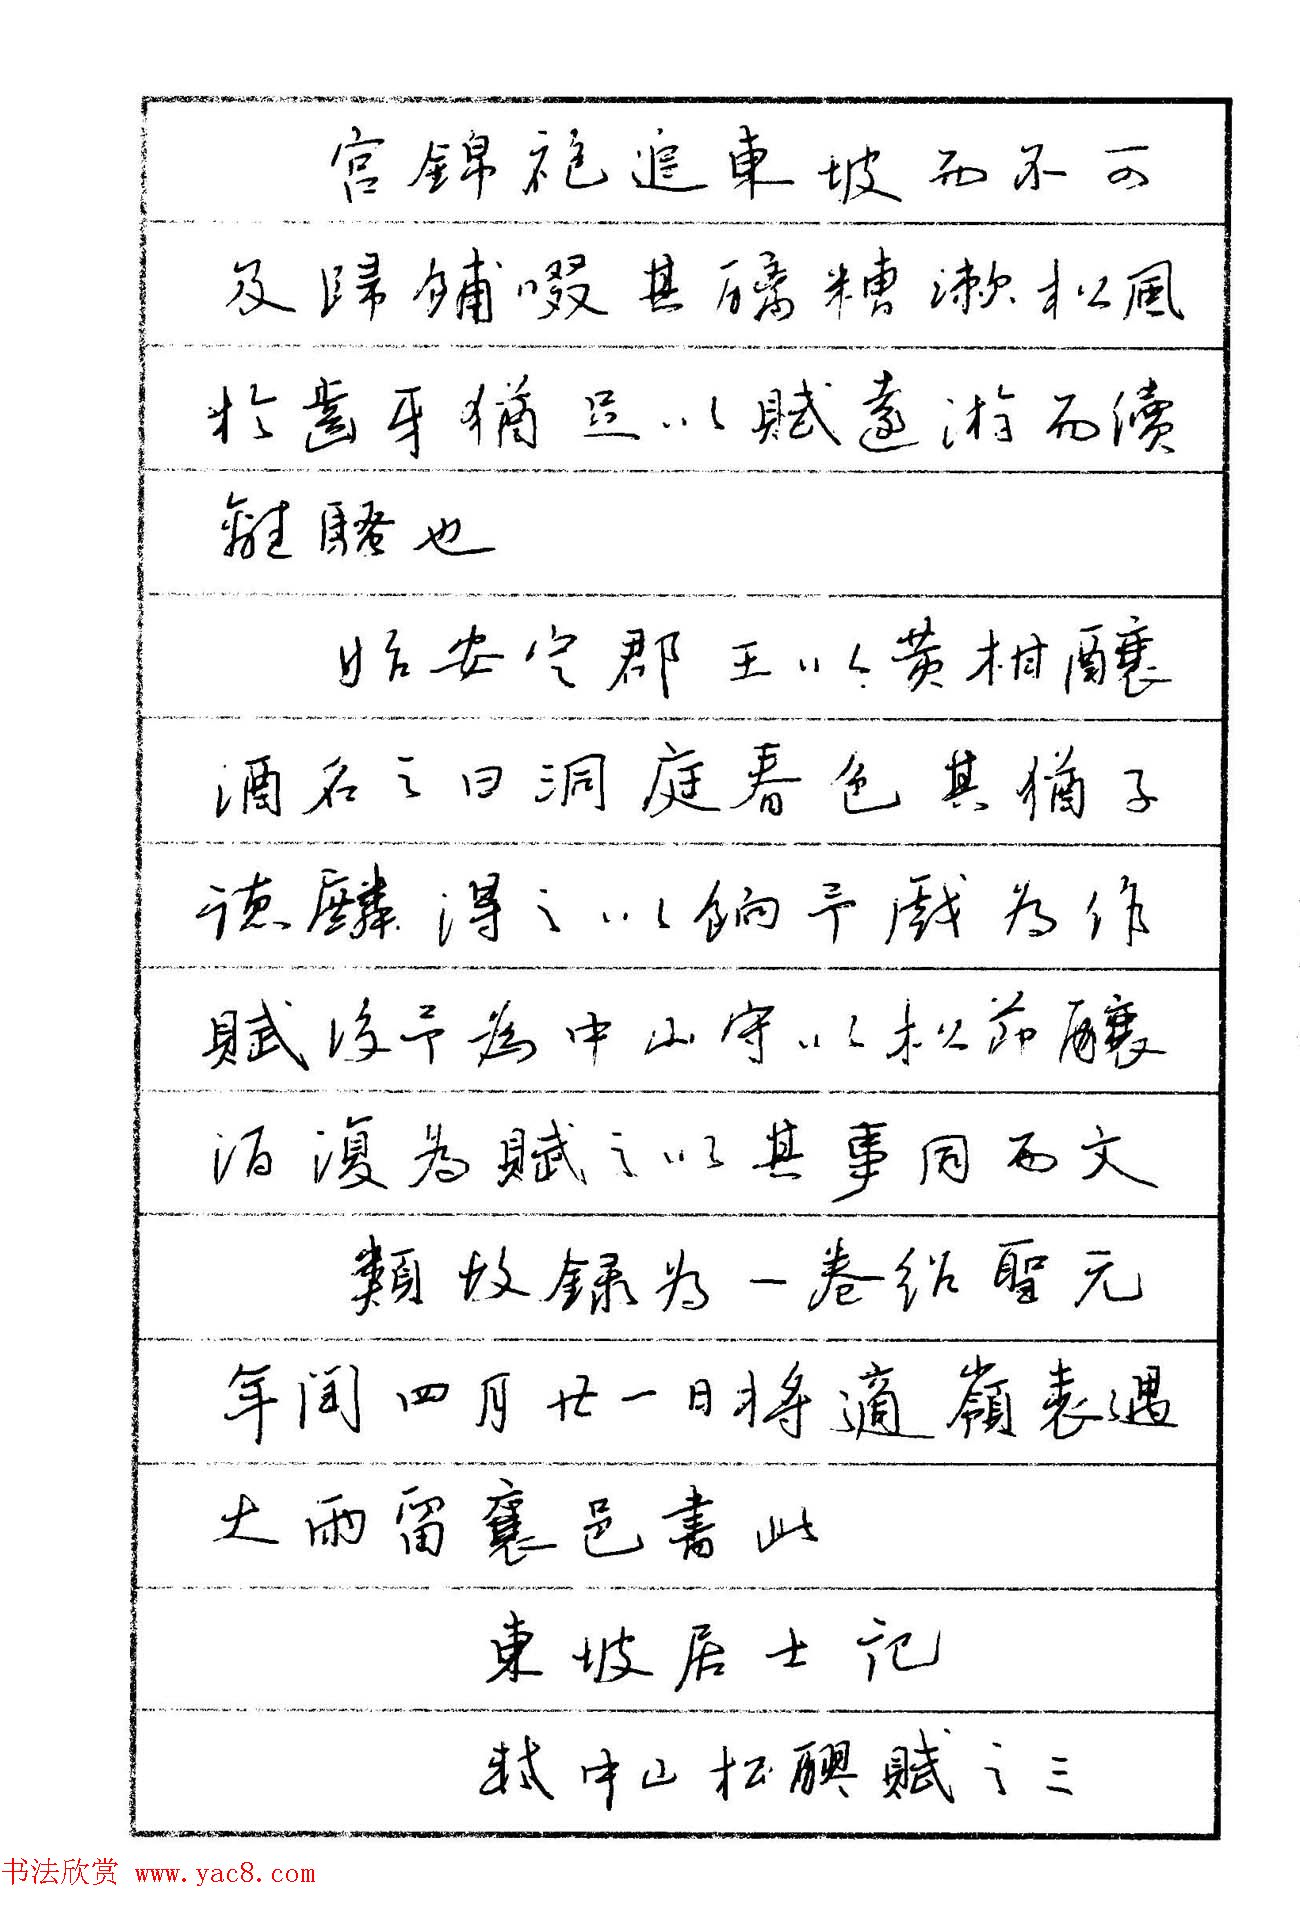 宮錦袍追東坡而不可
及歸餔啜其醨糟漱松風
於齒牙猶足以賦遠游而續
離騷也
始安定郡王以黄柑釀
酒名之曰洞庭春色其猶子
德麟得之以餉予戲為作
賦後予為中山守以松節釀
酒復為賦之以其事同而文
類故録為一卷紹聖元
年閏四月廿一日將適嶺表遇
大雨留襄邑書此
東坡居士記
中山松醪賦之三
书法欣赏 www.yac8.com